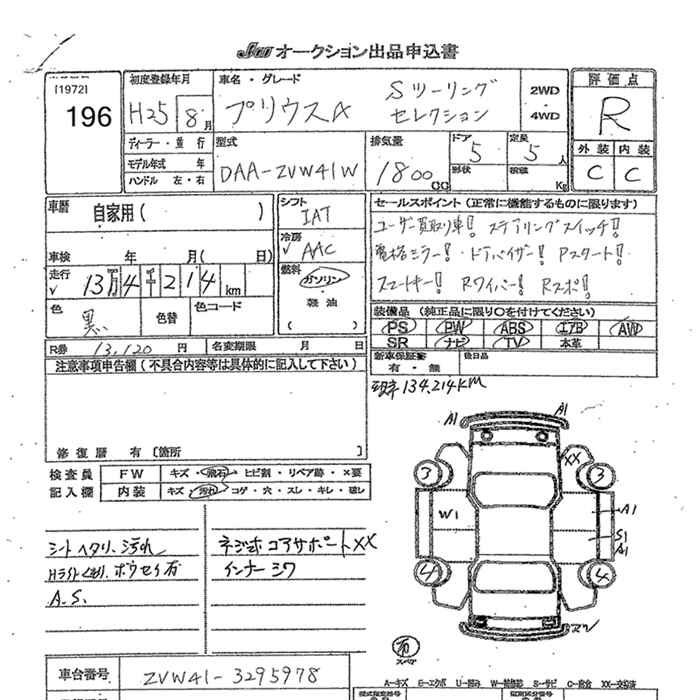 JU オークション出品申込書
[1972]
196
初度登録年月
H25 8月
車名・グレード
プリウスA Sツーリング
セレクション
2WD
・
4WD
評価点
R
外装 内装
C C
ディーラー・並行
モデル年式 年
ハンドル 左・右
型式
DAA-ZVW41W
排気量
1800 CC
ドア
5
形状
定員
5人
積載
Kg
車歴 自家用( )
車検 年 月( 日)
走行 13万4千214km
色 黒 色替 色コード
シフト
IAT
冷房
AAC
燃料
ガソリン
・
軽油
( )
セールスポイント(正常に機能するものに限ります)
ユーザー買取り車! ステアリングスイッチ!
電格ミラー! ドアバイザー! Pスタート!
スマートキー! Rワイパー! Rスポ!
装備品(純正品に限り○を付けてください)
PS PW ABS エアB AW
SR ナビ TV 本革
R券 13,120円 名変期限 月 日
新車保証書
有・無
後日品
注意事項申告欄(不具合内容等は具体的に記入して下さい)
134,214KM
修復歴 有〔箇所 〕
検査員
記入欄
FW キズ・飛石・ヒビ割・リペア跡・×要
内装 キズ・汚れ・コゲ・穴・スレ・キレ・破レ
シートヘタリ、汚れ
Hライトくもり、ボウセイ有
A.S.
ネジ止コアサポートXX
インナーシワ
A1 A1
XX
3 3
W1
A1
S1
A1
4 4
スペア
車台番号 ZVW41-3295978
A=キズ E=エクボ U=凹み W=補修跡 S=サビ C=腐食 XX=交換済